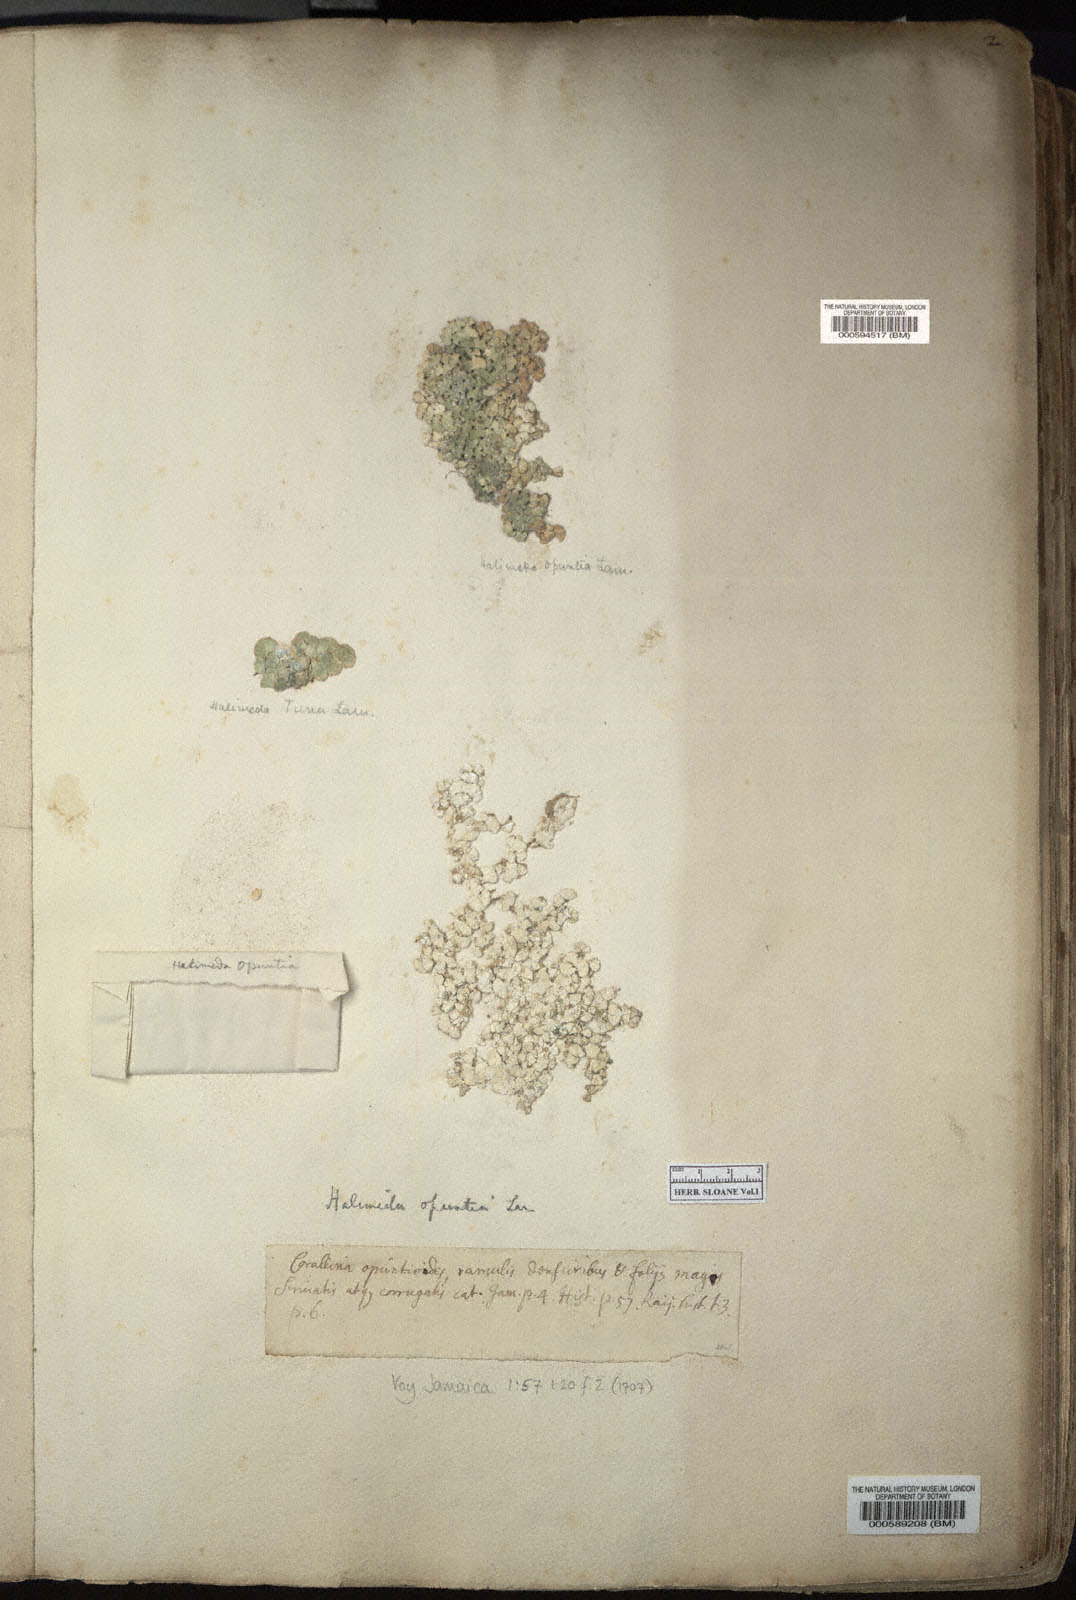 2
THE NATURAL HISTORY MUSEUM, LONDON
DEPARTMENT OF BOTANY
000594517 (BM)
Halimeda opuntia Lam.
Halimeda Tuna Lam.
Halimeda opuntia
1 2 3
HERB. SLOANE Vol.1
Halimeda opuntia Lam
Corallina opuntioides, ramulis densioribus & folijs magis
Sinuatis atq; corrugatis cat. Jam. p. 4. Hist. p. 57. Raij. hist. t. 3.
p. 6.
Voy Jamaica 1:57 t.20 f.2 (1707)
THE NATURAL HISTORY MUSEUM, LONDON
DEPARTMENT OF BOTANY
000589208 (BM)